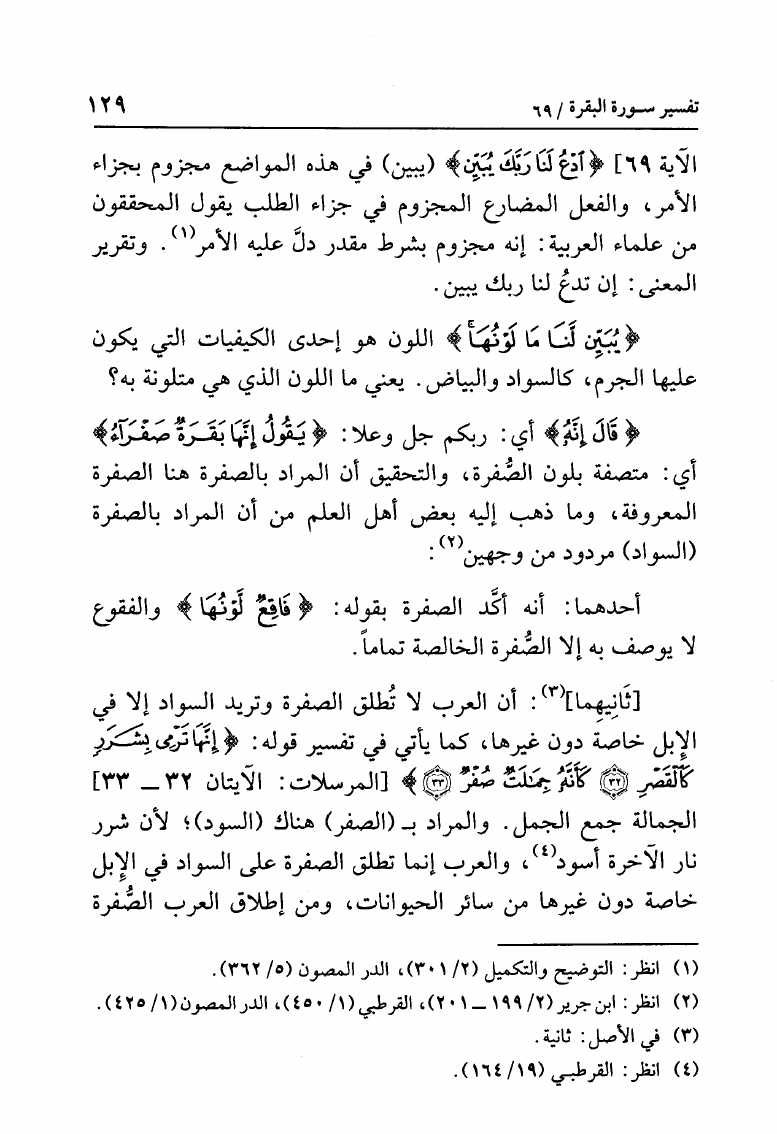 تفسير سـورة البقرة / ٦٩ ١٢٩
الآية ٦٩] ﴿ٱدْعُ لَنَا رَبَّكَ يُبَيِّن﴾ (يبين) في هذه المواضع مجزوم بجزاء
الأمر، والفعل المضارع المجزوم في جزاء الطلب يقول المحققون
من علماء العربية: إنه مجزوم بشرط مقدر دلَّ عليه الأمر(١). وتقرير
المعنى: إن تدعُ لنا ربك يبين.
﴿يُبَيِّن لَّنَا مَا لَوْنُهَاۚ﴾ اللون هو إحدى الكيفيات التي يكون
عليها الجرم، كالسواد والبياض. يعني ما اللون الذي هي متلونة به؟
﴿قَالَ إِنَّهُ﴾ أي: ربكم جل وعلا: ﴿يَقُولُ إِنَّهَا بَقَرَةٌ صَفْرَآءُ﴾
أي: متصفة بلون الصُّفرة، والتحقيق أن المراد بالصفرة هنا الصفرة
المعروفة، وما ذهب إليه بعض أهل العلم من أن المراد بالصفرة
(السواد) مردود من وجهين(٢):
أحدهما: أنه أكَّد الصفرة بقوله: ﴿فَاقِعٌ لَّوْنُهَا﴾ والفقوع
لا يوصف به إلا الصُّفرة الخالصة تماماً.
[ثَانِيهِما](٣): أن العرب لا تُطلق الصفرة وتريد السواد إلا في
الإبل خاصة دون غيرها، كما يأتي في تفسير قوله: ﴿إِنَّهَا تَرْمِى بِشَرَرٍ
كَٱلْقَصْرِ ٣٢ كَأَنَّهُ جِمَٰلَتٌ صُفْرٌ ٣٣﴾ [المرسلات: الآيتان ٣٢ ـ ٣٣]
الجمالة جمع الجمل. والمراد بـ (الصفر) هناك (السود)؛ لأن شرر
نار الآخرة أسود(٤)، والعرب إنما تطلق الصفرة على السواد في الإبل
خاصة دون غيرها من سائر الحيوانات، ومن إطلاق العرب الصُّفرة
(١) انظر: التوضيح والتكميل (٢/ ٣٠١)، الدر المصون (٥/ ٣٦٢).
(٢) انظر: ابن جرير (٢/ ١٩٩ ـ ٢٠١)، القرطبي (١/ ٤٥٠)، الدر المصون (١/ ٤٢٥).
(٣) في الأصل: ثانية.
(٤) انظر: القرطبـي (١٩/ ١٦٤).